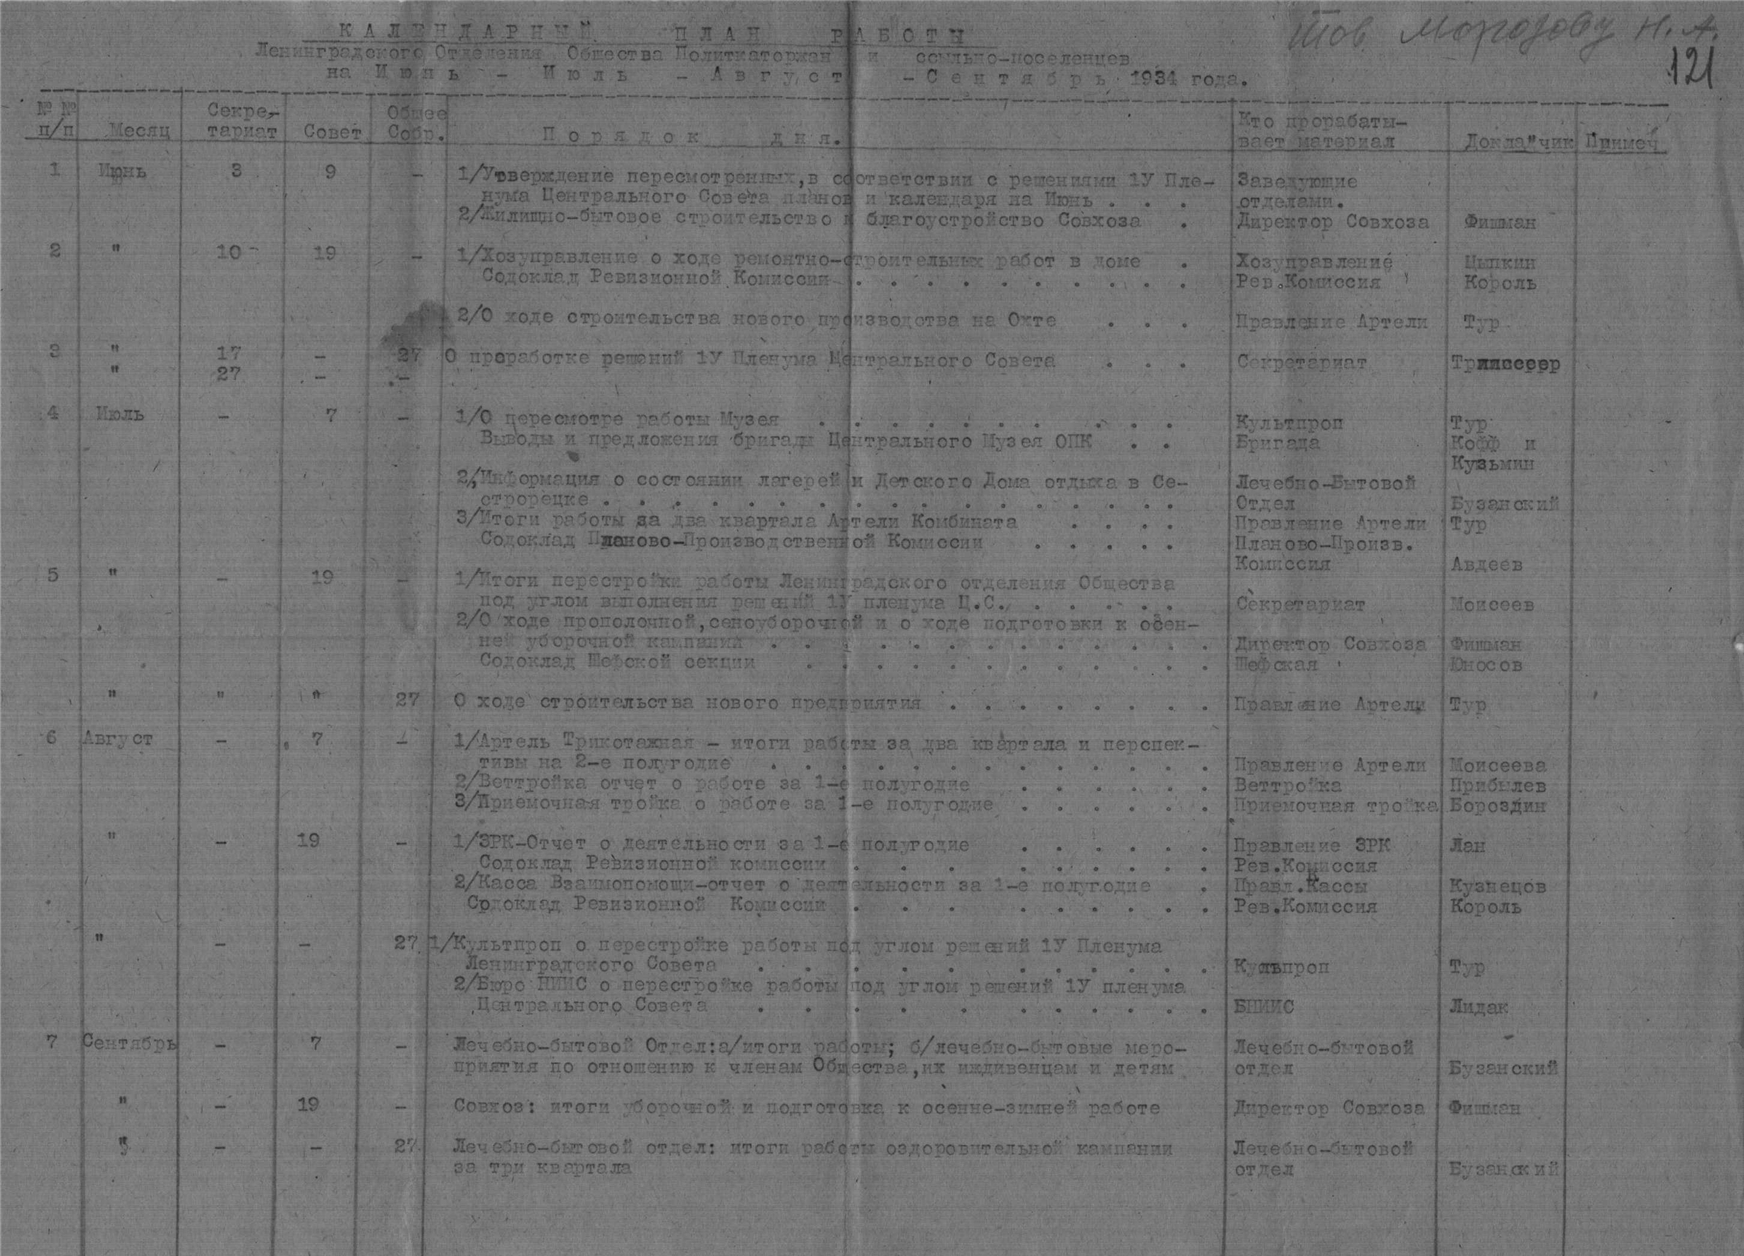 Тов Морозову Н. А.
121
КАЛЕНДАРНЫЙ ПЛАН РАБОТЫ
Ленинградского Отделения Общества Политкаторжан и ссыльно-поселенцев
на Июнь - Июль - Август - Сентябрь 1934 года.
№ № п/п Месяц Секре-тариат Совет Общее Собр. Порядок дня. Кто прорабаты-вает материал Докладчик Примеч
1 Июнь 3 9 - 1/Утверждение пересмотренных,в соответствии с решениями 1У Пле- Заведующие
нума Центрального Совета планов и календаря на Июнь . . . отделами.
2/Жилищно-бытовое строительство и благоустройство Совхоза . Директор Совхоза Фишман
2 " 10 19 - 1/Хозуправление о ходе ремонтно-строительных работ в доме . Хозуправление Цыпкин
Содоклад Ревизионной Комиссии . . . . . . . . . Рев.Комиссия Король
2/О ходе строительства нового производства на Охте . . . Правление Артели Тур
3 " 17 - 27 О проработке решений 1У Пленума Центрального Совета . . . Секретариат
" 27 - -
4 Июль - 7 - 1/О пересмотре работы Музея . . . . . . . . . Культпроп Тур
Выводы и предложения бригады Центрального Музея ОПК . . Бригада Кофф и
Кузьмин
2/Информация о состоянии лагерей и Детского Дома отдыха в Се- Лечебно-Бытовой
строрецке . . . . . . . . . . . . . . . . Отдел Бузанский
3/Итоги работы за два квартала Артели Комбината . . . . Правление Артели Тур
Содоклад Планово-Производственной Комиссии . . . . . Планово-Произв.
Комиссия Авдеев
5 " - 19 - 1/Итоги перестройки работы Ленинградского отделения Общества
под углом выполнения решений 1У пленума Ц.С. . . . . . Секретариат Моисеев
2/О ходе прополочной,сеноуборочной и о ходе подготовки к осен-
ней уборочной кампании . . . . . . . . . . . . Директор Совхоза Фишман
Содоклад Шефской секции . . . . . . . . . . . Шефская Юносов
" " " 27 О ходе строительства нового предприятия . . . . . . . . Правление Артели Тур
6 Август - 7 - 1/Артель Трикотажная - итоги работы за два квартала и перспек-
тивы на 2-е полугодие . . . . . . . . . . . . Правление Артели Моисеева
2/Веттройка отчет о работе за 1-е полугодие . . . . . . Веттройка Прибылев
3/Приемочная тройка о работе за 1-е полугодие . . . . . . Приемочная тройка Бороздин
" - 19 - 1/ЗРК-Отчет о деятельности за 1-е полугодие . . . . . . Правление ЗРК Лан
Содоклад Ревизионной комиссии . . . . . . . . . Рев.Комиссия
2/Касса Взаимопомощи-отчет о деятельности за 1-е полугодие . Правл.Кассы Кузнецов
Содоклад Ревизионной Комиссии . . . . . . . . . Рев.Комиссия Король
" - - 27 1/Культпроп о перестройке работы под углом решений 1У Пленума
Ленинградского Совета . . . . . . . . . . . . Культпроп Тур
2/Бюро НИИС о перестройке работы под углом решений 1У пленума
Центрального Совета . . . . . . . . . . . . БНИИС Лидак
7 Сентябрь - 7 - Лечебно-бытовой Отдел:а/итоги работы; б/лечебно-бытовые меро- Лечебно-бытовой
приятия по отношению к членам Общества,их иждивенцам и детям отдел Бузанский
" - 19 - Совхоз: итоги уборочной и подготовка к осенне-зимней работе Директор Совхоза Фишман
" - - 27 Лечебно-бытовой отдел: итоги работы оздоровительной кампании Лечебно-бытовой
за три квартала отдел Бузанский